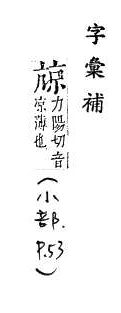 字彙補
力陽切音
凉薄也
(小部. P.53)